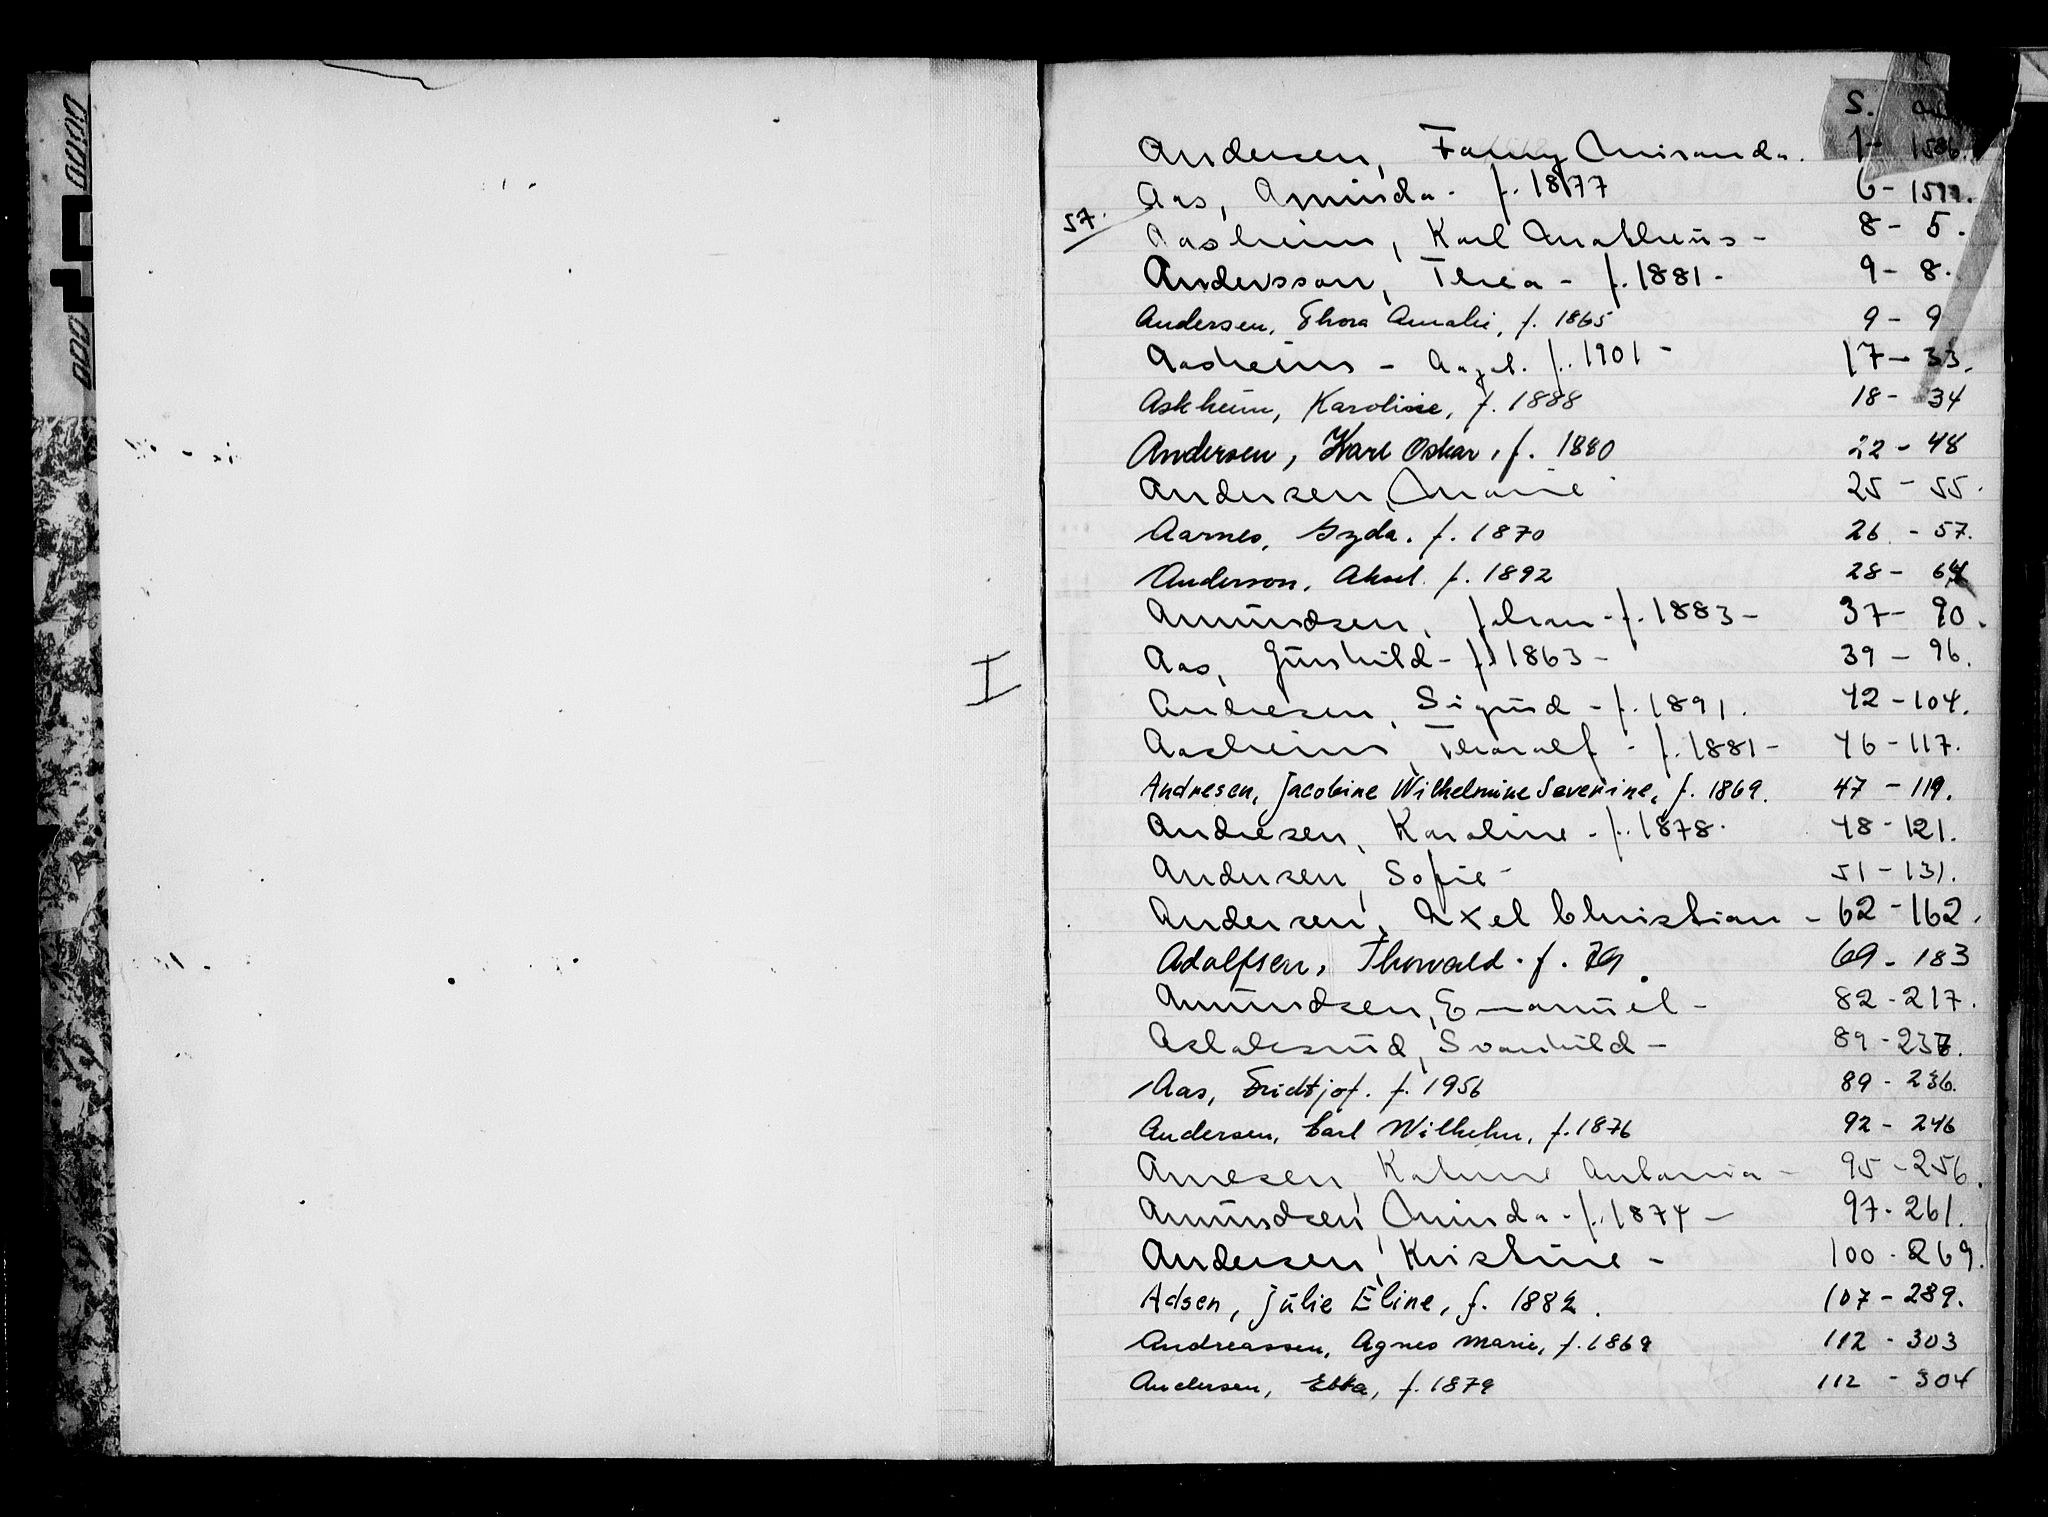 I
S.
Andersen, Fanny Miranda. 1- 1586.
Aas, Aminda - f. 1877 6-
57. Aasheim, Karl Matheüs - 8 - 5.
Andersson, Thea - f. 1881 - 9 - 8.
Andersen, Thora Amalie, f. 1865 9 - 9
Aasheim - f. 1901 - 17 - 33.
Askheim, Karoline, f. 1888 18 - 34
Andersen, Karl Oskar, f. 1880 22 - 48
Andersen, Marie 25 - 55.
Aarnes, Gyda. f. 1870 26 - 57.
Anderson, Aksel. f. 1892 28 - 64
Amündsen, Johan - f. 1883 - 37 - 90.
Aas, Günhild - f. 1863 - 39 - 96.
Andresen, Sigürd - f. 1891. 42 - 104.
Aasheim, Tharalf - f. 1881 - 46 - 117.
Andresen, Jacobine Wilhelmine Severine, f. 1869. 47 - 119.
Andresen, Karoline - f. 1878. 48 - 121.
Andersen, Sofie - 51 - 131.
Andersen, Axel Christian - 62 - 162.
Adolfsen, Thorvald. f. 79. 69 - 183
Amündsen, Emanüel - 82 - 217.
Aslaksrüd, Svanhild - 89 -
Aas, Fridtjof. f. 1956 89 - 236.
Andersen, Carl Wilhelm, f. 1876 92 - 246
Arnesen, Antonia - 95 - 256.
Amündsen, Minda - f. 1874 - 97 - 261.
Andersen, Kristine - 100 - 269.
Adsen, Jülie Eline, f. 1882. 107 - 289.
Andreassen, Agnes Marie, f. 1869 112 - 303
Andersen, Ebba, f. 1879 112 - 304